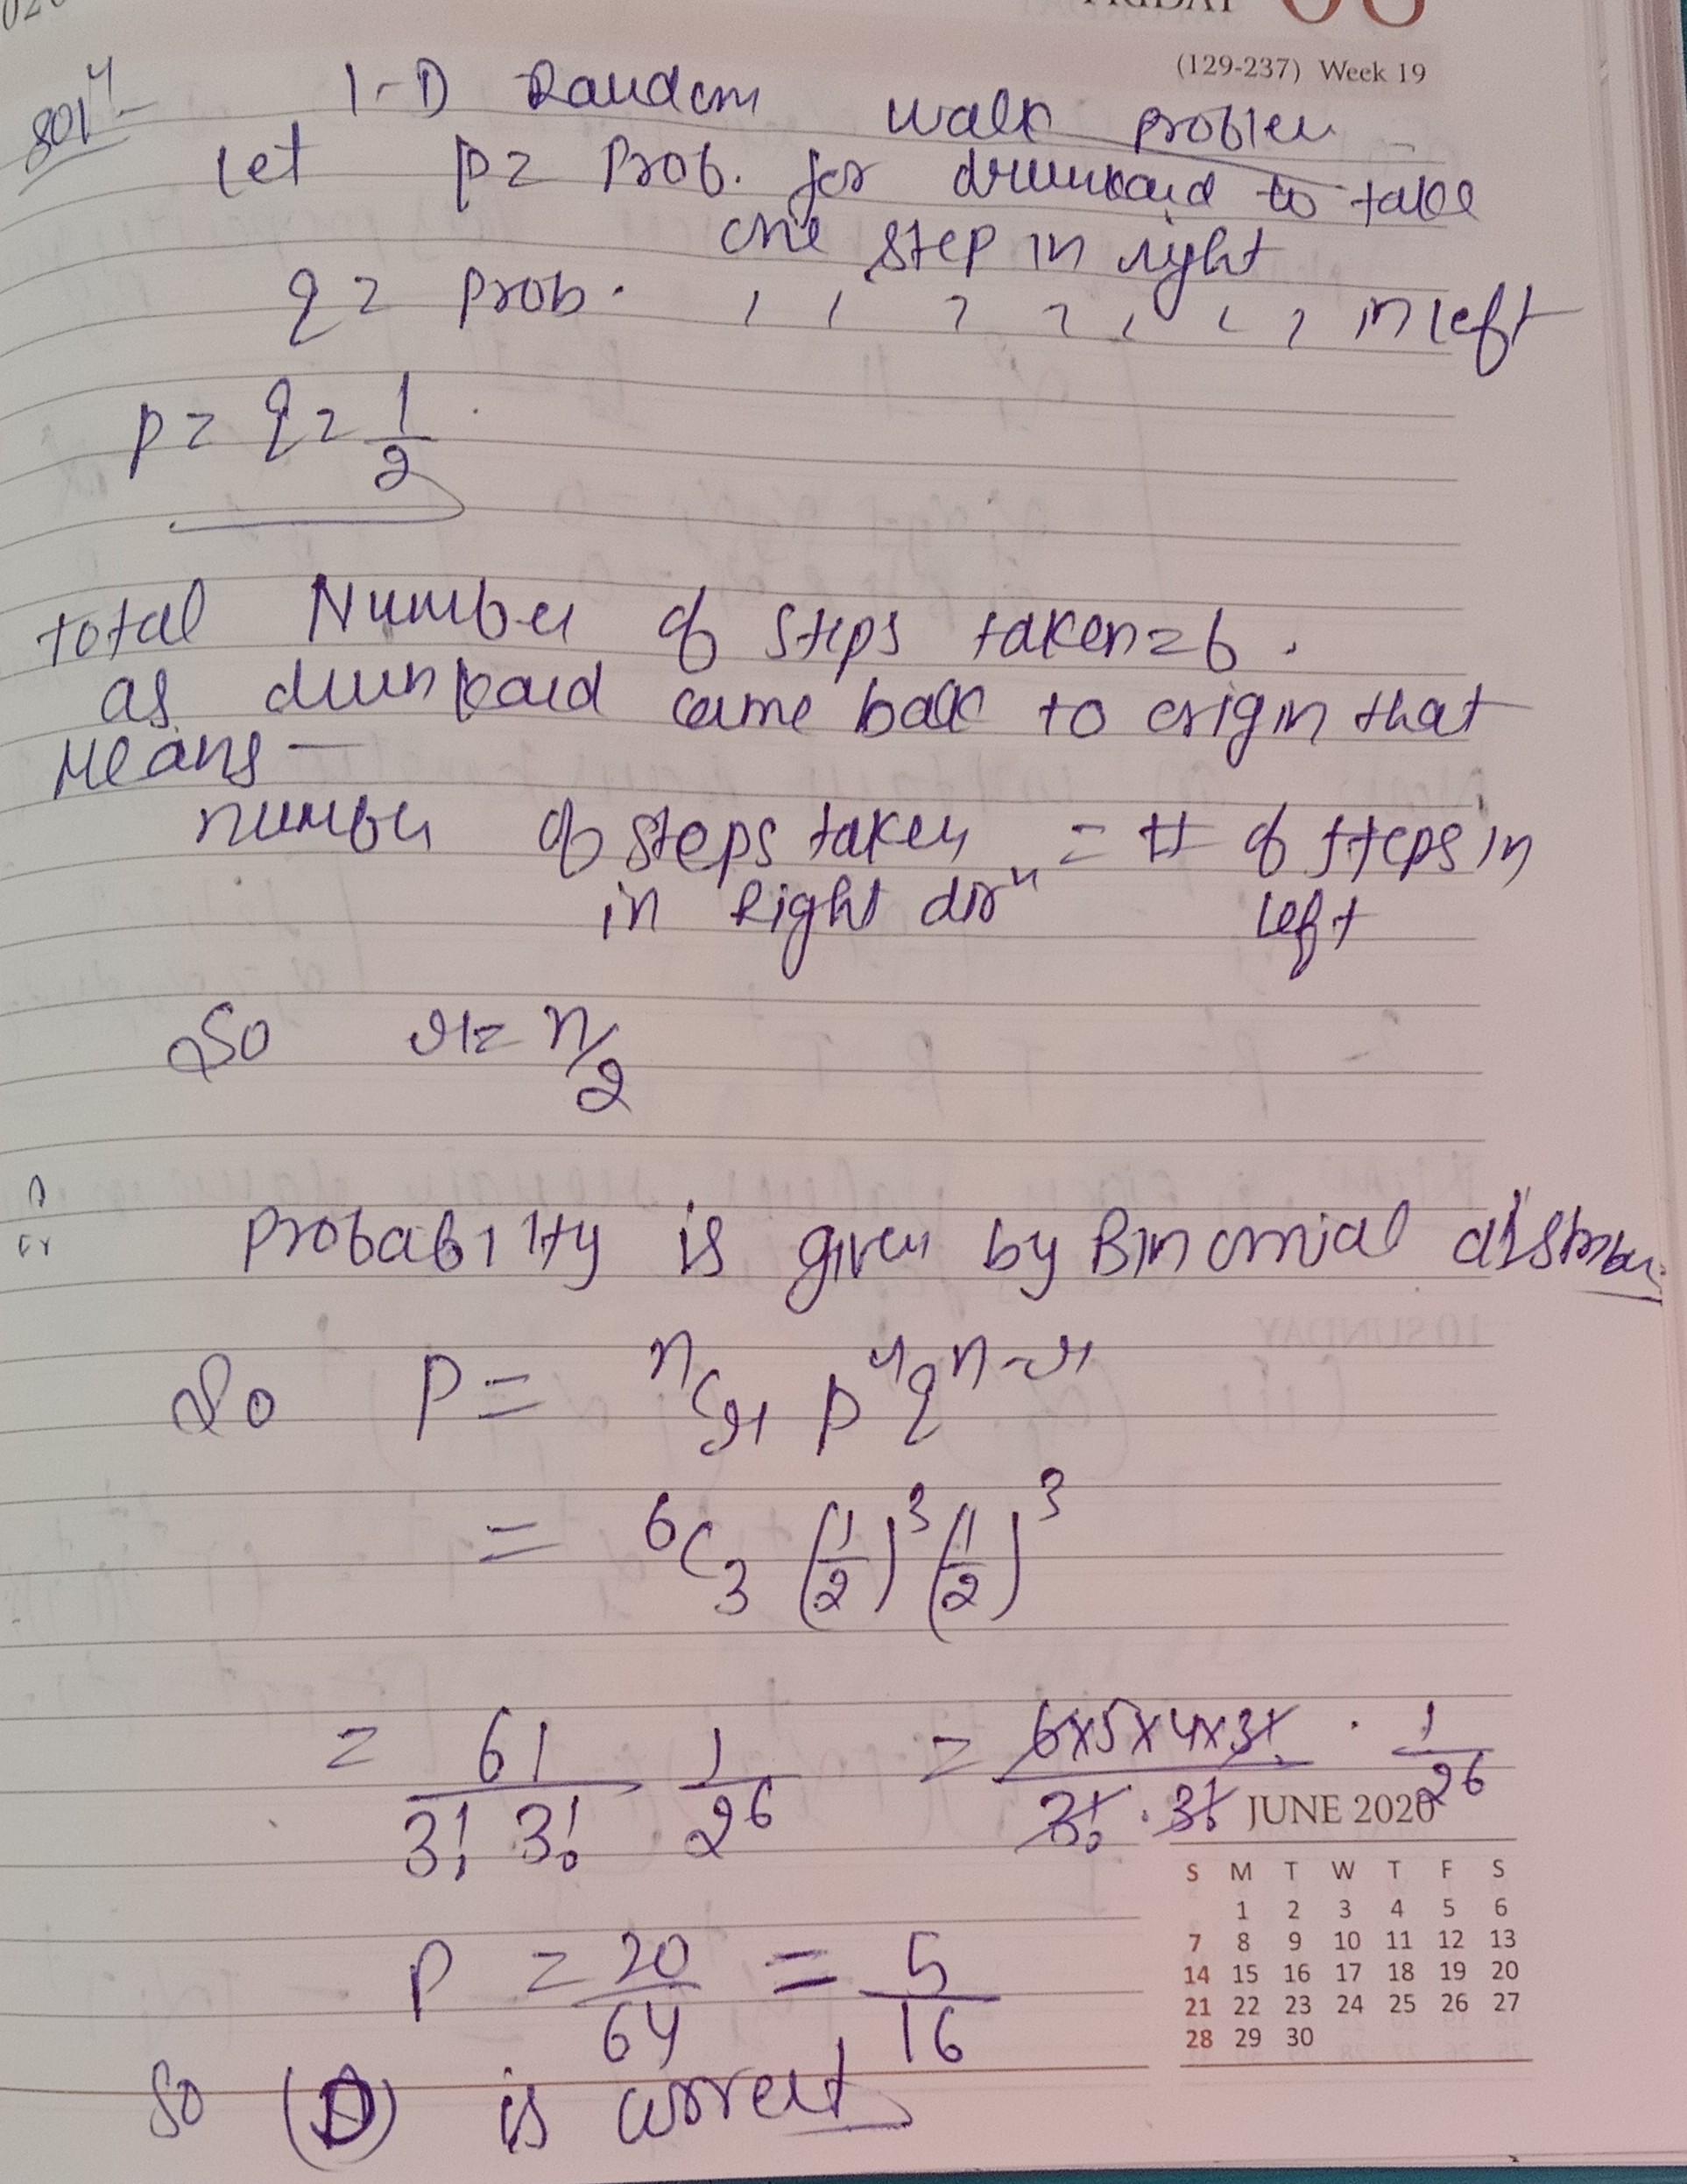 FRIDAY 08
(129-237) Week 19
Solⁿ-
1-D Random walk problem
Let p = Prob. for drunkard to take
one step in right
q = prob. , , , , , , , in left
p = q = 1/2
total Number of steps taken = 6.
as drunkard came back to origin that
Means —
number of steps taken = # of steps in
in Right dirⁿ left
So r = n/2
Probability is given by Binomial distribu.
So P = ⁿCᵣ pʳ qⁿ⁻ʳ
= ⁶C₃ (1/2)³ (1/2)³
= 6!/(3! 3!) 1/2⁶ = (6x5x4x3!)/(3! . 3!) . 1/2⁶
P = 20/64 = 5/16
So (D) is correct
JUNE 2020
S M T W T F S
1 2 3 4 5 6
7 8 9 10 11 12 13
14 15 16 17 18 19 20
21 22 23 24 25 26 27
28 29 30